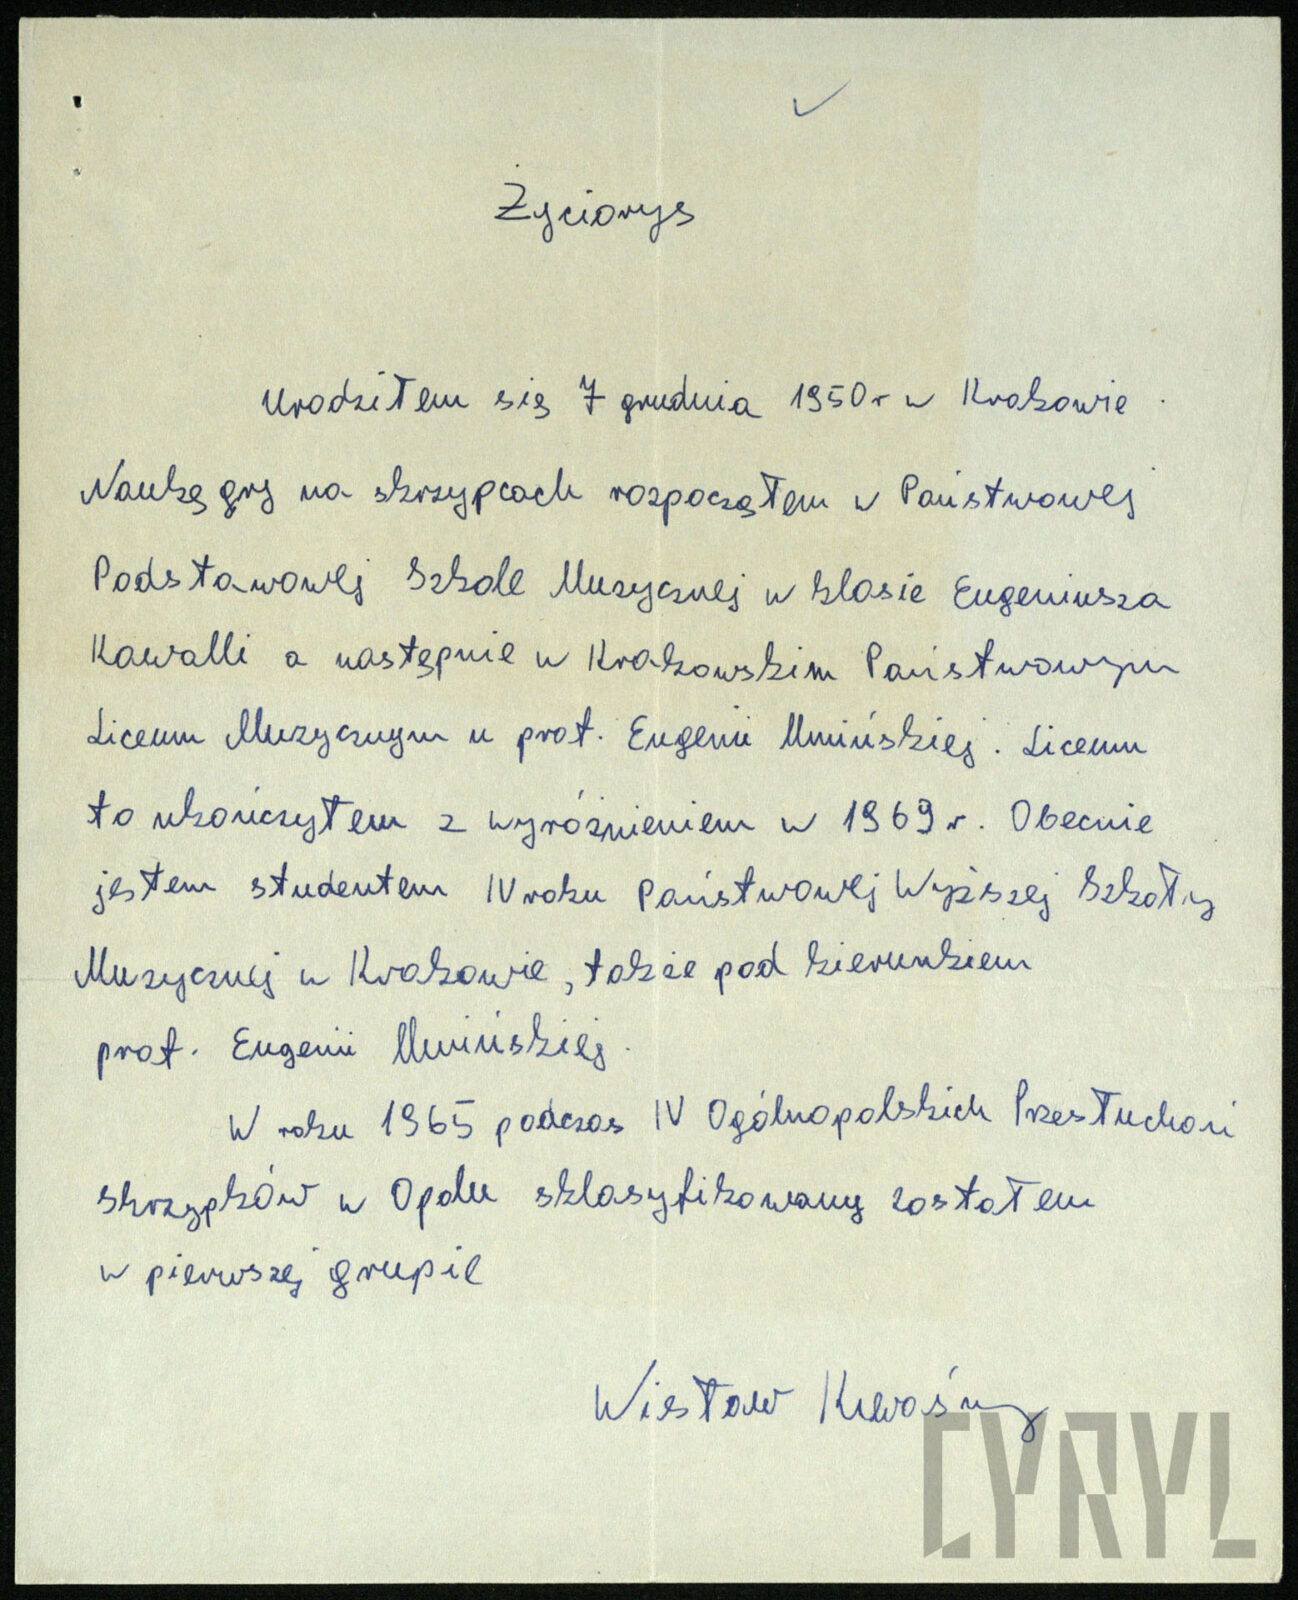 Życiorys
Urodziłem się 7 grudnia 1950 r w Krakowie.
Naukę gry na skrzypcach rozpocząłem w Państwowej
Podstawowej Szkole Muzycznej w klasie Eugeniusza
Kawalli a następnie w Krakowskim Państwowym
Liceum Muzycznym u prof. Eugenii Umińskiej. Liceum
to ukończyłem z wyróżnieniem w 1969 r. Obecnie
jestem studentem IV roku Państwowej Wyższej Szkoły
Muzycznej w Krakowie, także pod kierunkiem
prof. Eugenii Umińskiej.
W roku 1965 podczas IV Ogólnopolskich Przesłuchań
skrzypków w Opolu sklasyfikowany zostałem
w pierwszej grupie
Wiesław Kwaśny
CYRYL